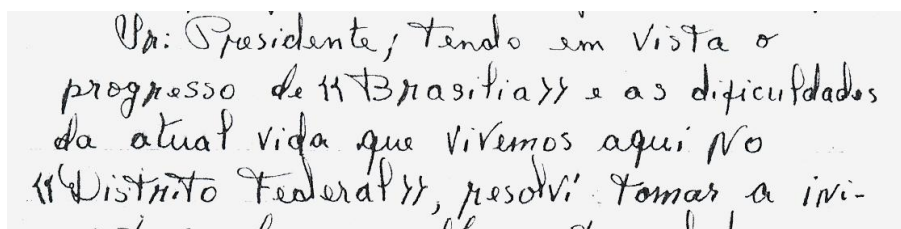 Sr: Presidente, tendo em vista o
progresso de «Brasilia» e as dificuldades
da atual vida que vivemos aqui no
«Distrito Federal», resolvi tomar a ini-